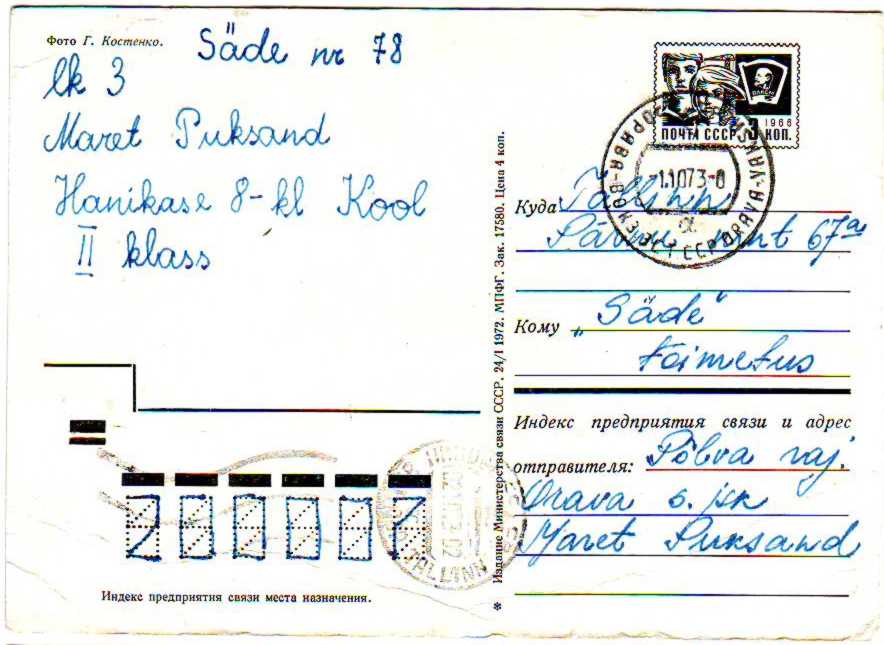 Фото Г. Костенко.
Säde nr 78
lk 3
Maret Puksand
Hanikase 8-kl Kool
II klass
ВЛКСМ
1966
ПОЧТА СССР 3 КОП.
-1.1073-0
Куда Tallinn
Pärnu mnt 67a
Кому „Säde"
toimetus
Индекс предприятия связи и адрес
отправителя: Põlva raj.
Orava s. jsk
Maret Puksand
Издание Министерства связи СССР. 24/I 1972. МПФГ. Зак. 17580. Цена 4 коп.
TALLINN
200001
Индекс предприятия связи места назначения.